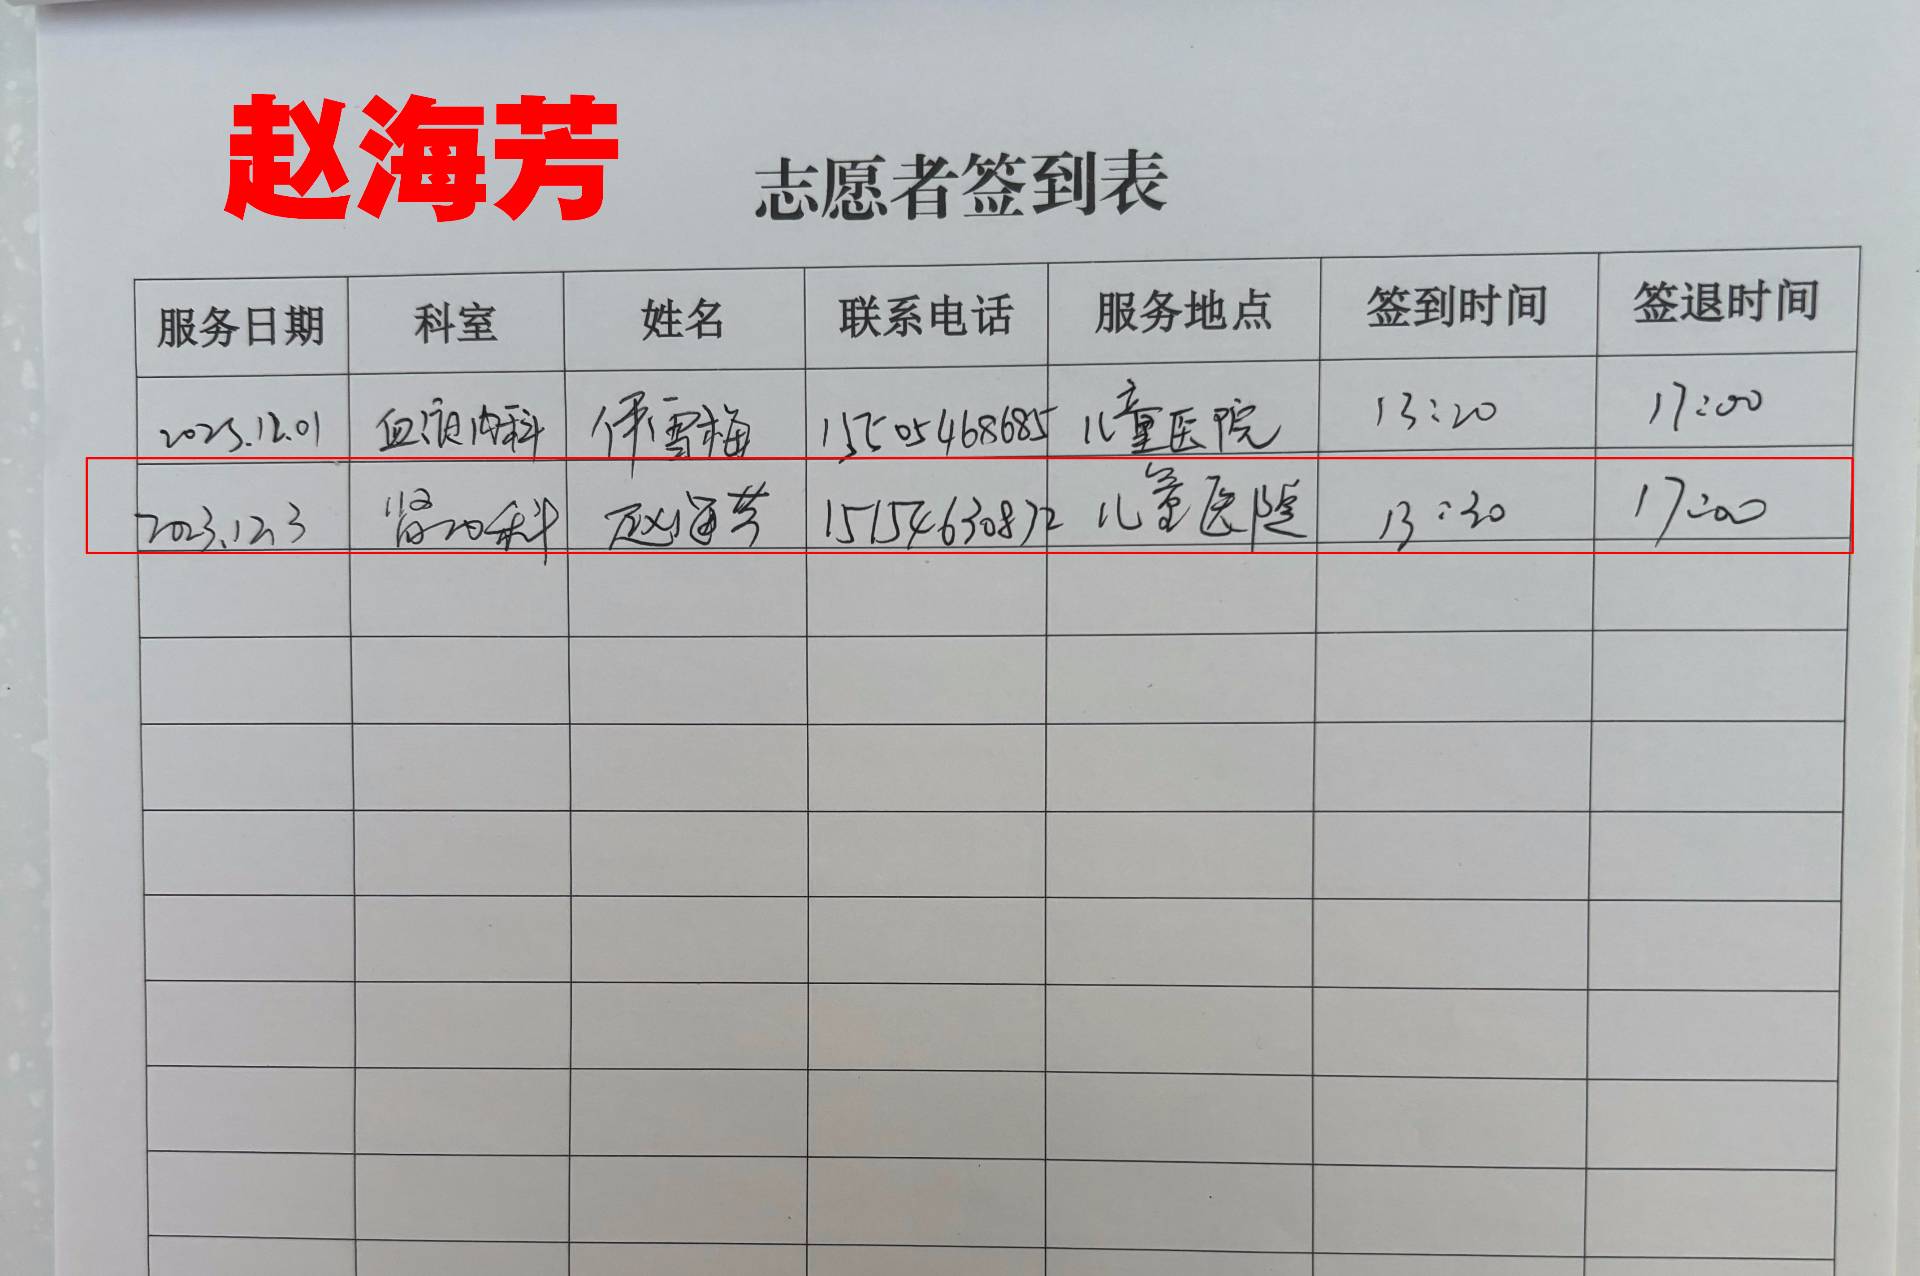 赵海芳
志愿者签到表
服务日期 科室 姓名 联系电话 服务地点 签到时间 签退时间
2023.12.01 血液内科 伊雪梅 15505468685 儿童医院 13:20 17:00
2023.12.3 肾内科 赵海芳 15154630872 儿童医院 13:30 17:00